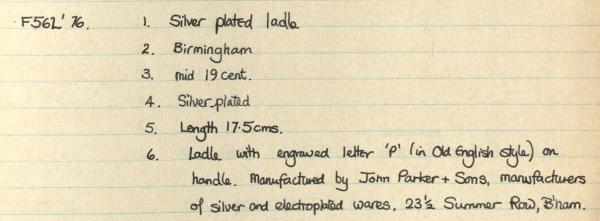 F562' 76. 1. Silver plated ladle
2. Birmingham
3. mid 19 cent.
4. Silver-plated
5. Length 17.5cms.
6. Ladle with engraved letter 'P' (in Old English style) on
handle. Manufactured by John Parker + Sons, manufacturers
of silver and electroplated wares, 23½ Summer Row, B'ham.